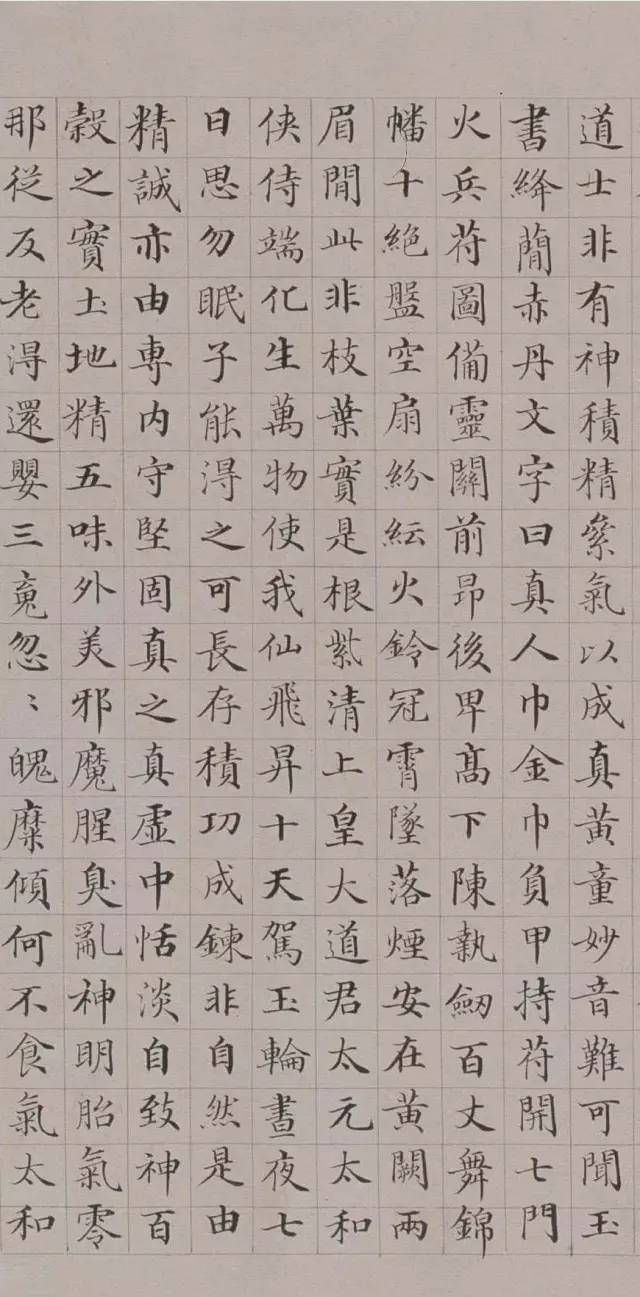 道士非有神積精絫氣以成真黃童妙音難可聞玉
書絳蕑赤丹文字曰真人巾金巾負甲持苻開七門
火兵苻圖俻靈關前昂後卑髙下陳執劒百丈舞錦
幡十絕盤空扇紛紜火鈴冠霄墜落煙安在黃闕兩
眉間此非枝葉實是根紫清上皇大道君太元太和
俠侍端化生萬物使我仙飛昇十天駕玉輪晝夜七
日思勿眠子能淂之可長存積功成鍊非自然是由
精誠亦由専内守堅固真之真虛中恬淡自致神百
穀之實土地精五味外美邪魔腥臭亂神明胎氣零
那從反老淂還嬰三䰟忽〻魄糜傾何不食氣太和